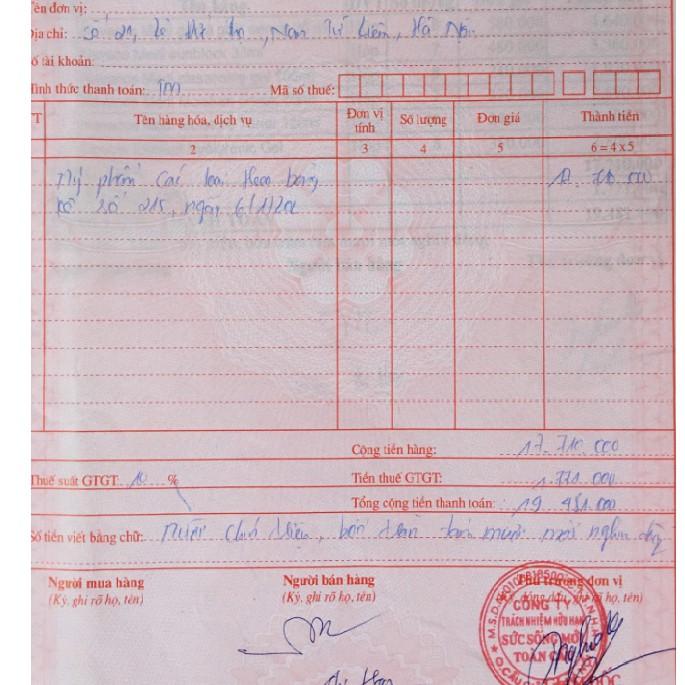 ên đơn vị:
Địa chỉ: Số 21, Lê Đức Thọ, Nam Từ Liêm, Hà Nội
ố tài khoản:
ình thức thanh toán: Tm Mã số thuế:
T Tên hàng hóa, dịch vụ Đơn vị tính Số lượng Đơn giá Thành tiền
2 3 4 5 6 = 4 x 5
Mỹ phẩm các loại theo bảng 17.710.000
kê số 215, ngày 6/1/20
Cộng tiền hàng: 17.710.000
Thuế suất GTGT: 10 % Tiền thuế GTGT: 1.771.000
Tổng cộng tiền thanh toán: 19.481.000
Số tiền viết bằng chữ: Mười chín triệu, bốn trăm tám mươi mốt nghìn đồng
Người mua hàng Người bán hàng Thủ trưởng đơn vị
(Ký, ghi rõ họ, tên) (Ký, ghi rõ họ, tên) (Ký, đóng dấu, ghi rõ họ, tên)
CÔNG TY
TRÁCH NHIỆM HỮU HẠN
SỨC SỐNG MỚI
TOÀN